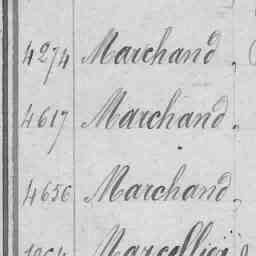 4274 Marchand.
4617 Marchand.
4656 Marchand.